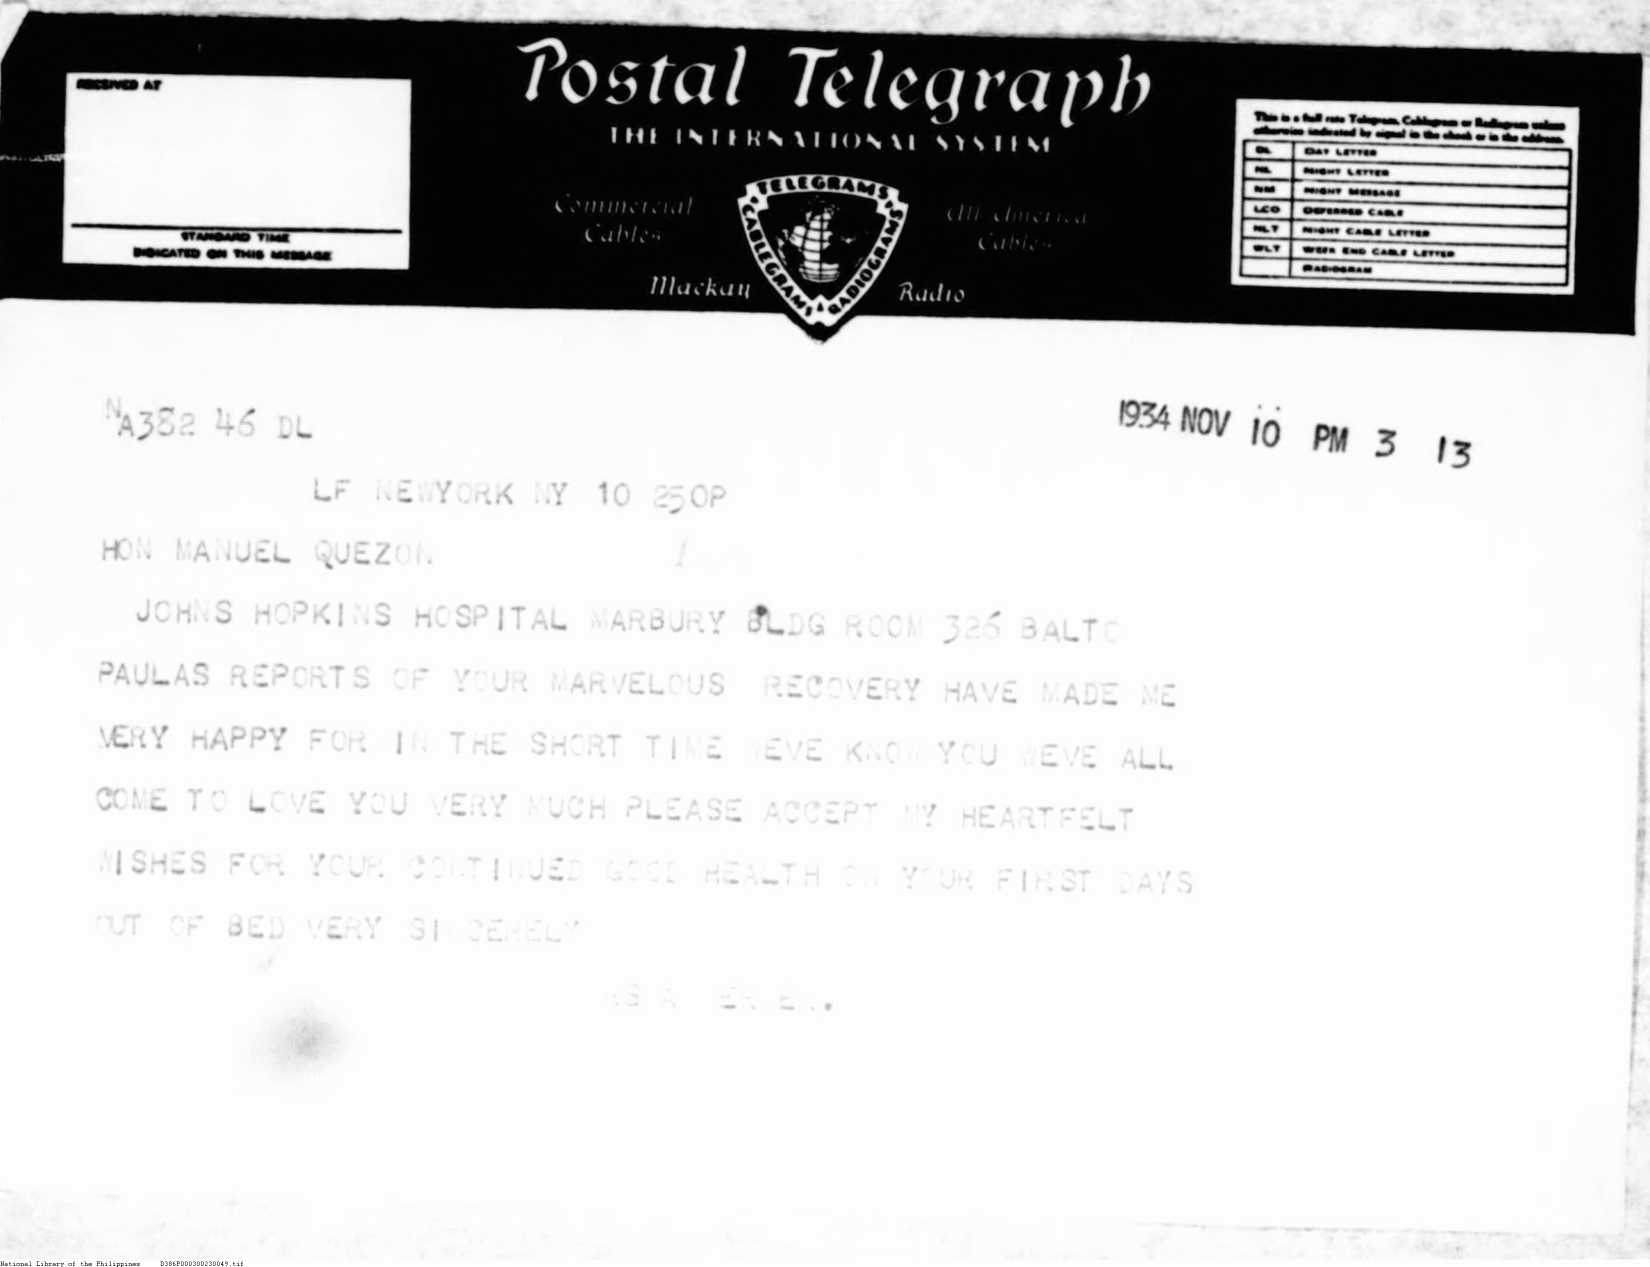 RECEIVED AT
STANDARD TIME
INDICATED ON THIS MESSAGE
Postal Telegraph
THE INTERNATIONAL SYSTEM
Commercial Cables
All America Cables
Mackay Radio
TELEGRAMS
CABLEGRAMS
RADIOGRAMS
This is a full rate Telegram, Cablegram or Radiogram unless
otherwise indicated by signal in the check or in the address.
DL DAY LETTER
NL NIGHT LETTER
NM NIGHT MESSAGE
LCO DEFERRED CABLE
NLT NIGHT CABLE LETTER
WLT WEEK END CABLE LETTER
RADIOGRAM
NA382 46 DL
1934 NOV 10 PM 3 13
LF NEWYORK NY 10 250P
HON MANUEL QUEZON
JOHNS HOPKINS HOSPITAL MARBURY BLDG ROOM 326 BALTO
PAULAS REPORTS OF YOUR MARVELOUS RECOVERY HAVE MADE ME
VERY HAPPY FOR IN THE SHORT TIME WEVE KNOW YOU WEVE ALL
COME TO LOVE YOU VERY MUCH PLEASE ACCEPT MY HEARTFELT
WISHES FOR YOUR CONTINUED GOOD HEALTH ON YOUR FIRST DAYS
OUT OF BED VERY SINCERELY
National Library of the Philippines D386P000300230049.tif